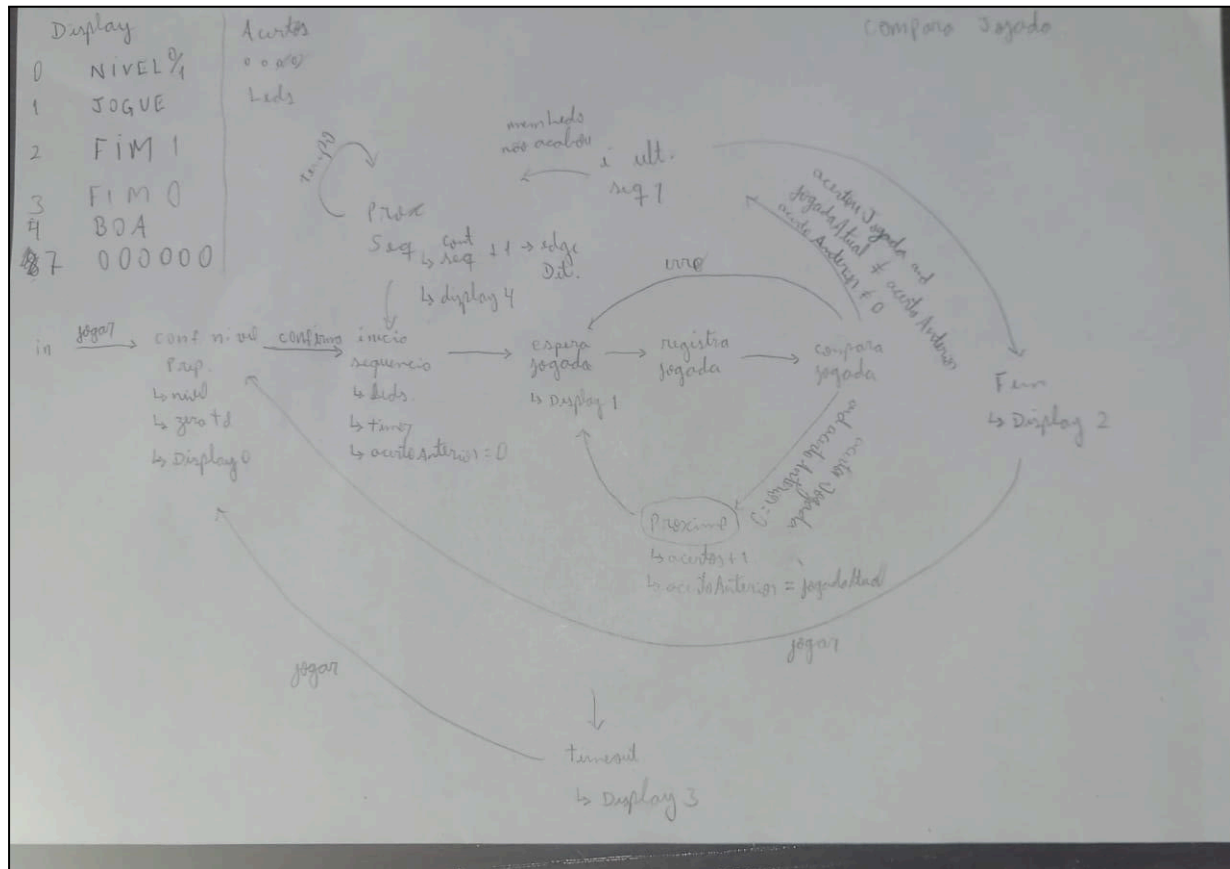 Display
0 NIVEL 0/1
1 JOGUE
2 FIM 1
3 FIM 0
4 BOA
7 000000
Acertos
Leds
Compara Jogada
tempo
memLeds
não acabou
é ult.
seq?
Prox
Seq
↳ cont seq ++1 → edge
Det.
↳ display 4
acertou Jogada and
jogadaAtual ≠ acertoAnterior
acertoAnterior ≠ 0
erro
in
jogar
conf nivel
Prep.
↳ nivel
↳ zera td
↳ Display 0
confirma
inicio
sequencia
↳ leds.
↳ timer
↳ acertoAnterior = 0
espera
jogada
↳ Display 1
registra
jogada
compara
jogada
Fim
↳ Display 2
acerta Jogada
and acertoAnterior = 0
Proximo
↳ acertos++1
↳ acertoAnterior = jogadaAtual
jogar
jogar
timeout
↳ Display 3